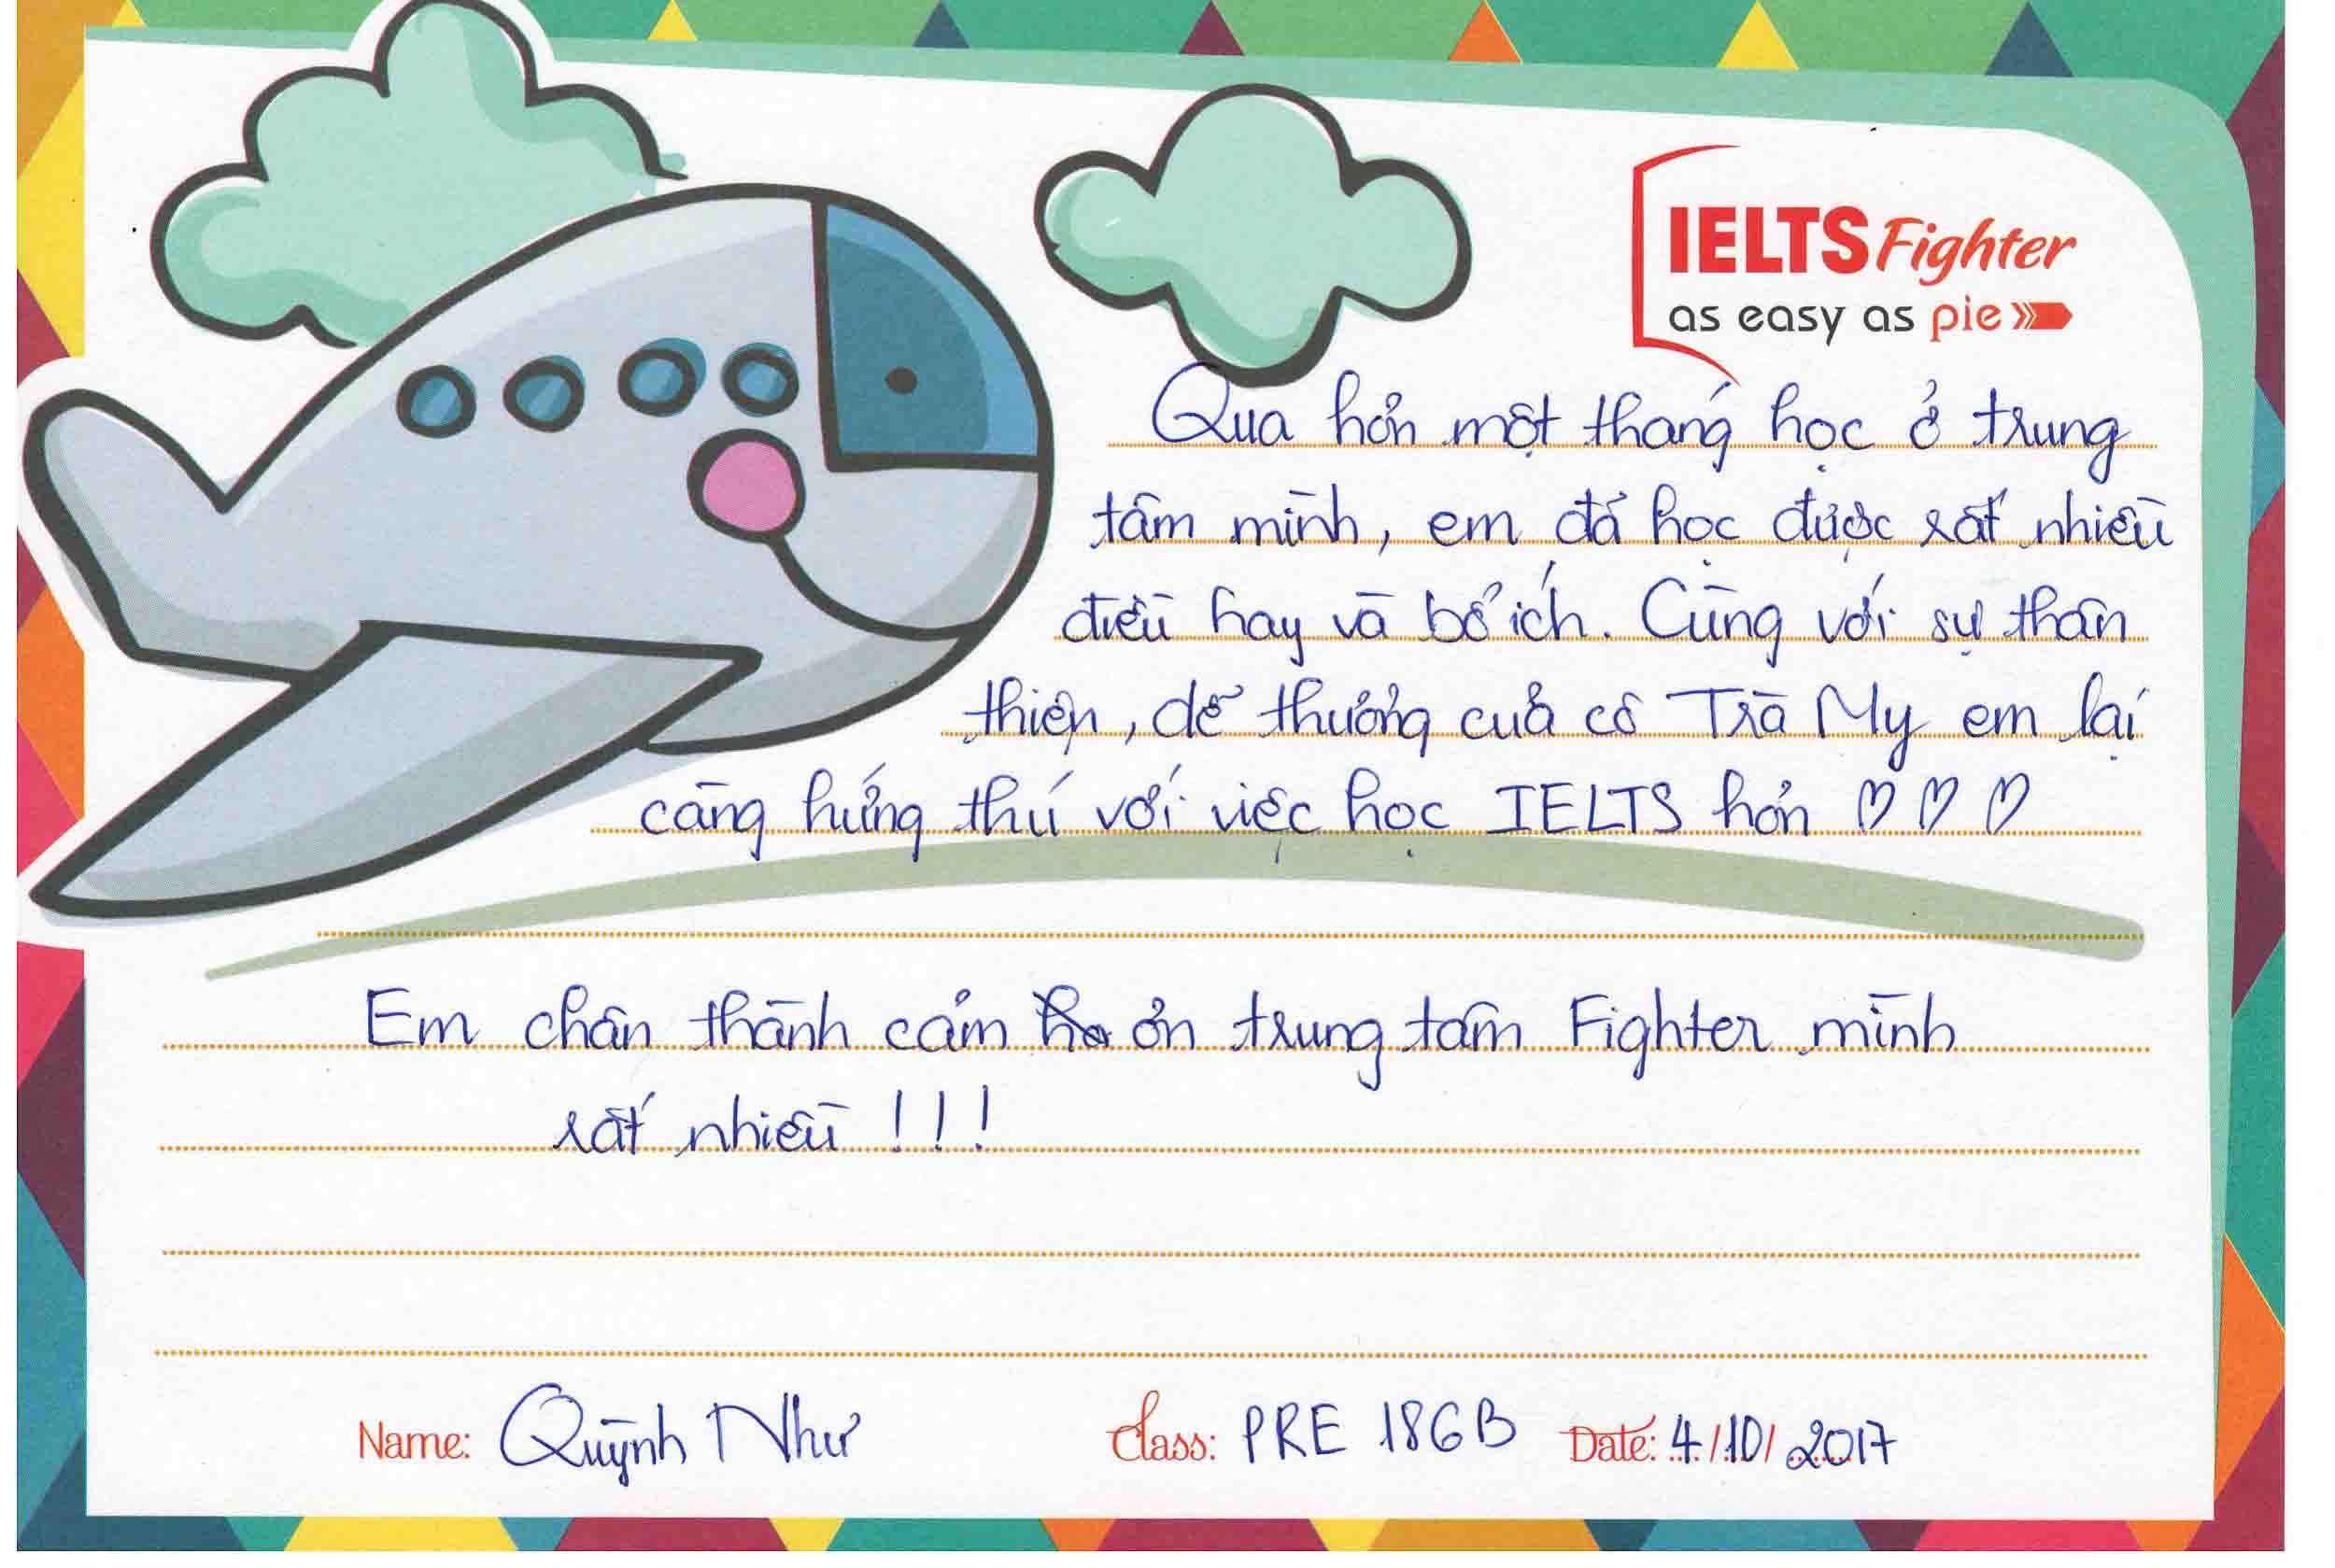 IELTS Fighter
as easy as pie
Qua hơn một tháng học ở trung
tâm mình, em đã học được rất nhiều
điều hay và bổ ích. Cùng với sự thân
thiện, dễ thương của cô Trà My em lại
càng hứng thú với việc học IELTS hơn ♡ ♡ ♡
Em chân thành cảm ơn trung tâm Fighter mình
rất nhiều !!!
Name: Quỳnh Như Class: PRE 186B Date: 4/10/2017